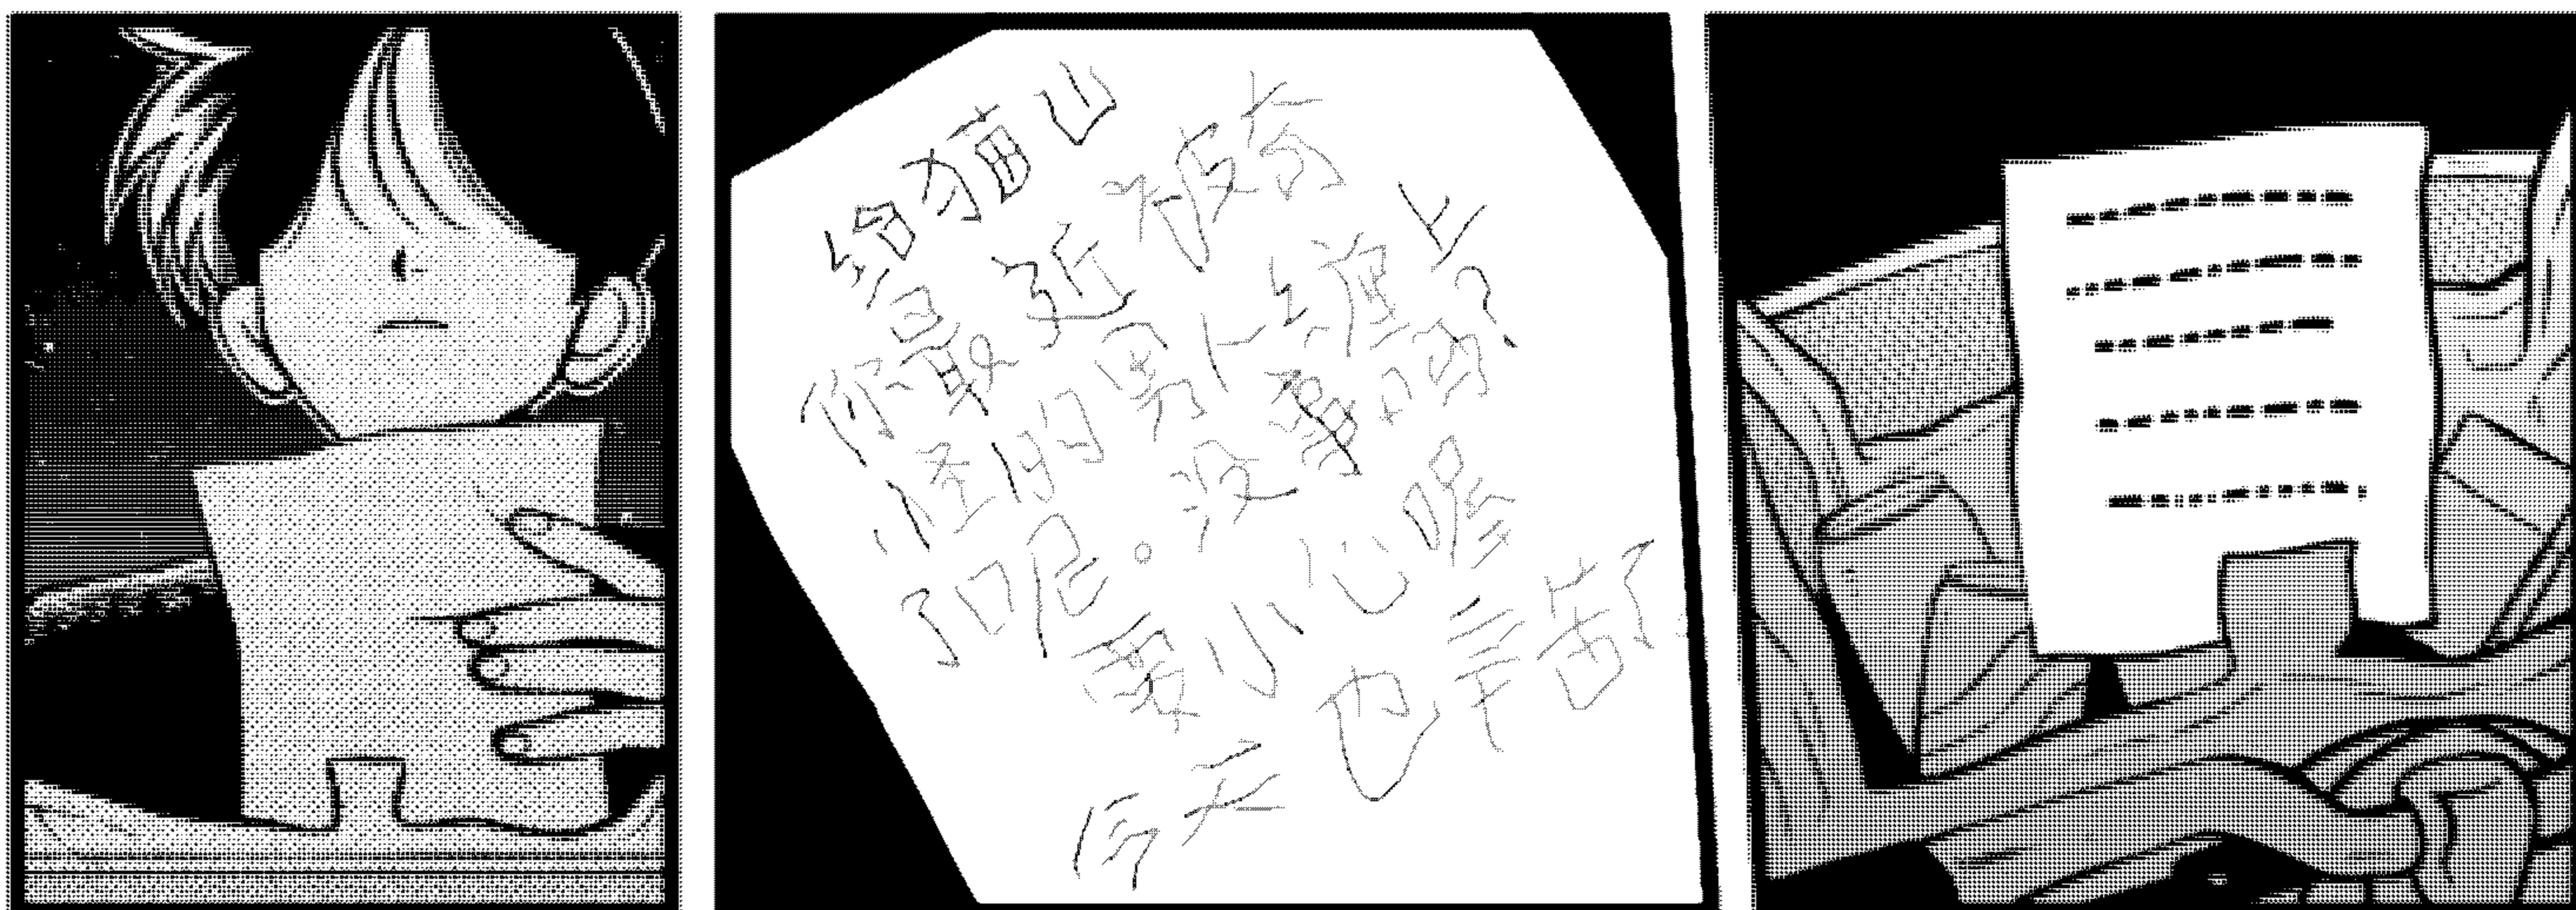 给猫山
你最近被奇
怪的男人缠上
了呢。没事吗?
要小心喔
今天也辛苦了